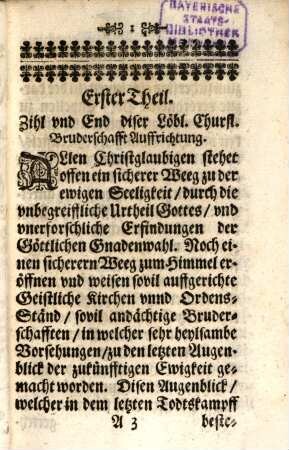 BAYERISCHE
STAATS-
BIBLIOTHEK
1
Erster Theil.
Zihl vnd End diser Löbl. Churfl.
Bruderschafft Auffrichtung.
ALlen Christglaubigen stehet
offen ein sicherer Weeg zu der
ewigen Seeligkeit / durch die
vnbegreiffliche Urtheil Gottes / vnd
vnerforschliche Erfindungen der
Göttlichen Gnadenwahl. Noch ei-
nen sicherern Weeg zum Himmel er-
öffnen vnd weisen sovil auffgerichte
Geistliche Kirchen vnnd Ordens-
Ständ / sovil andächtige Bruder-
schafften / in welcher sehr heylsambe
Vorsehungen / zu den letzten Augen-
blick der zukünfftigen Ewigkeit ge-
macht worden. Disen Augenblick /
welcher in dem letzten Todtskampff
A 3 beste-